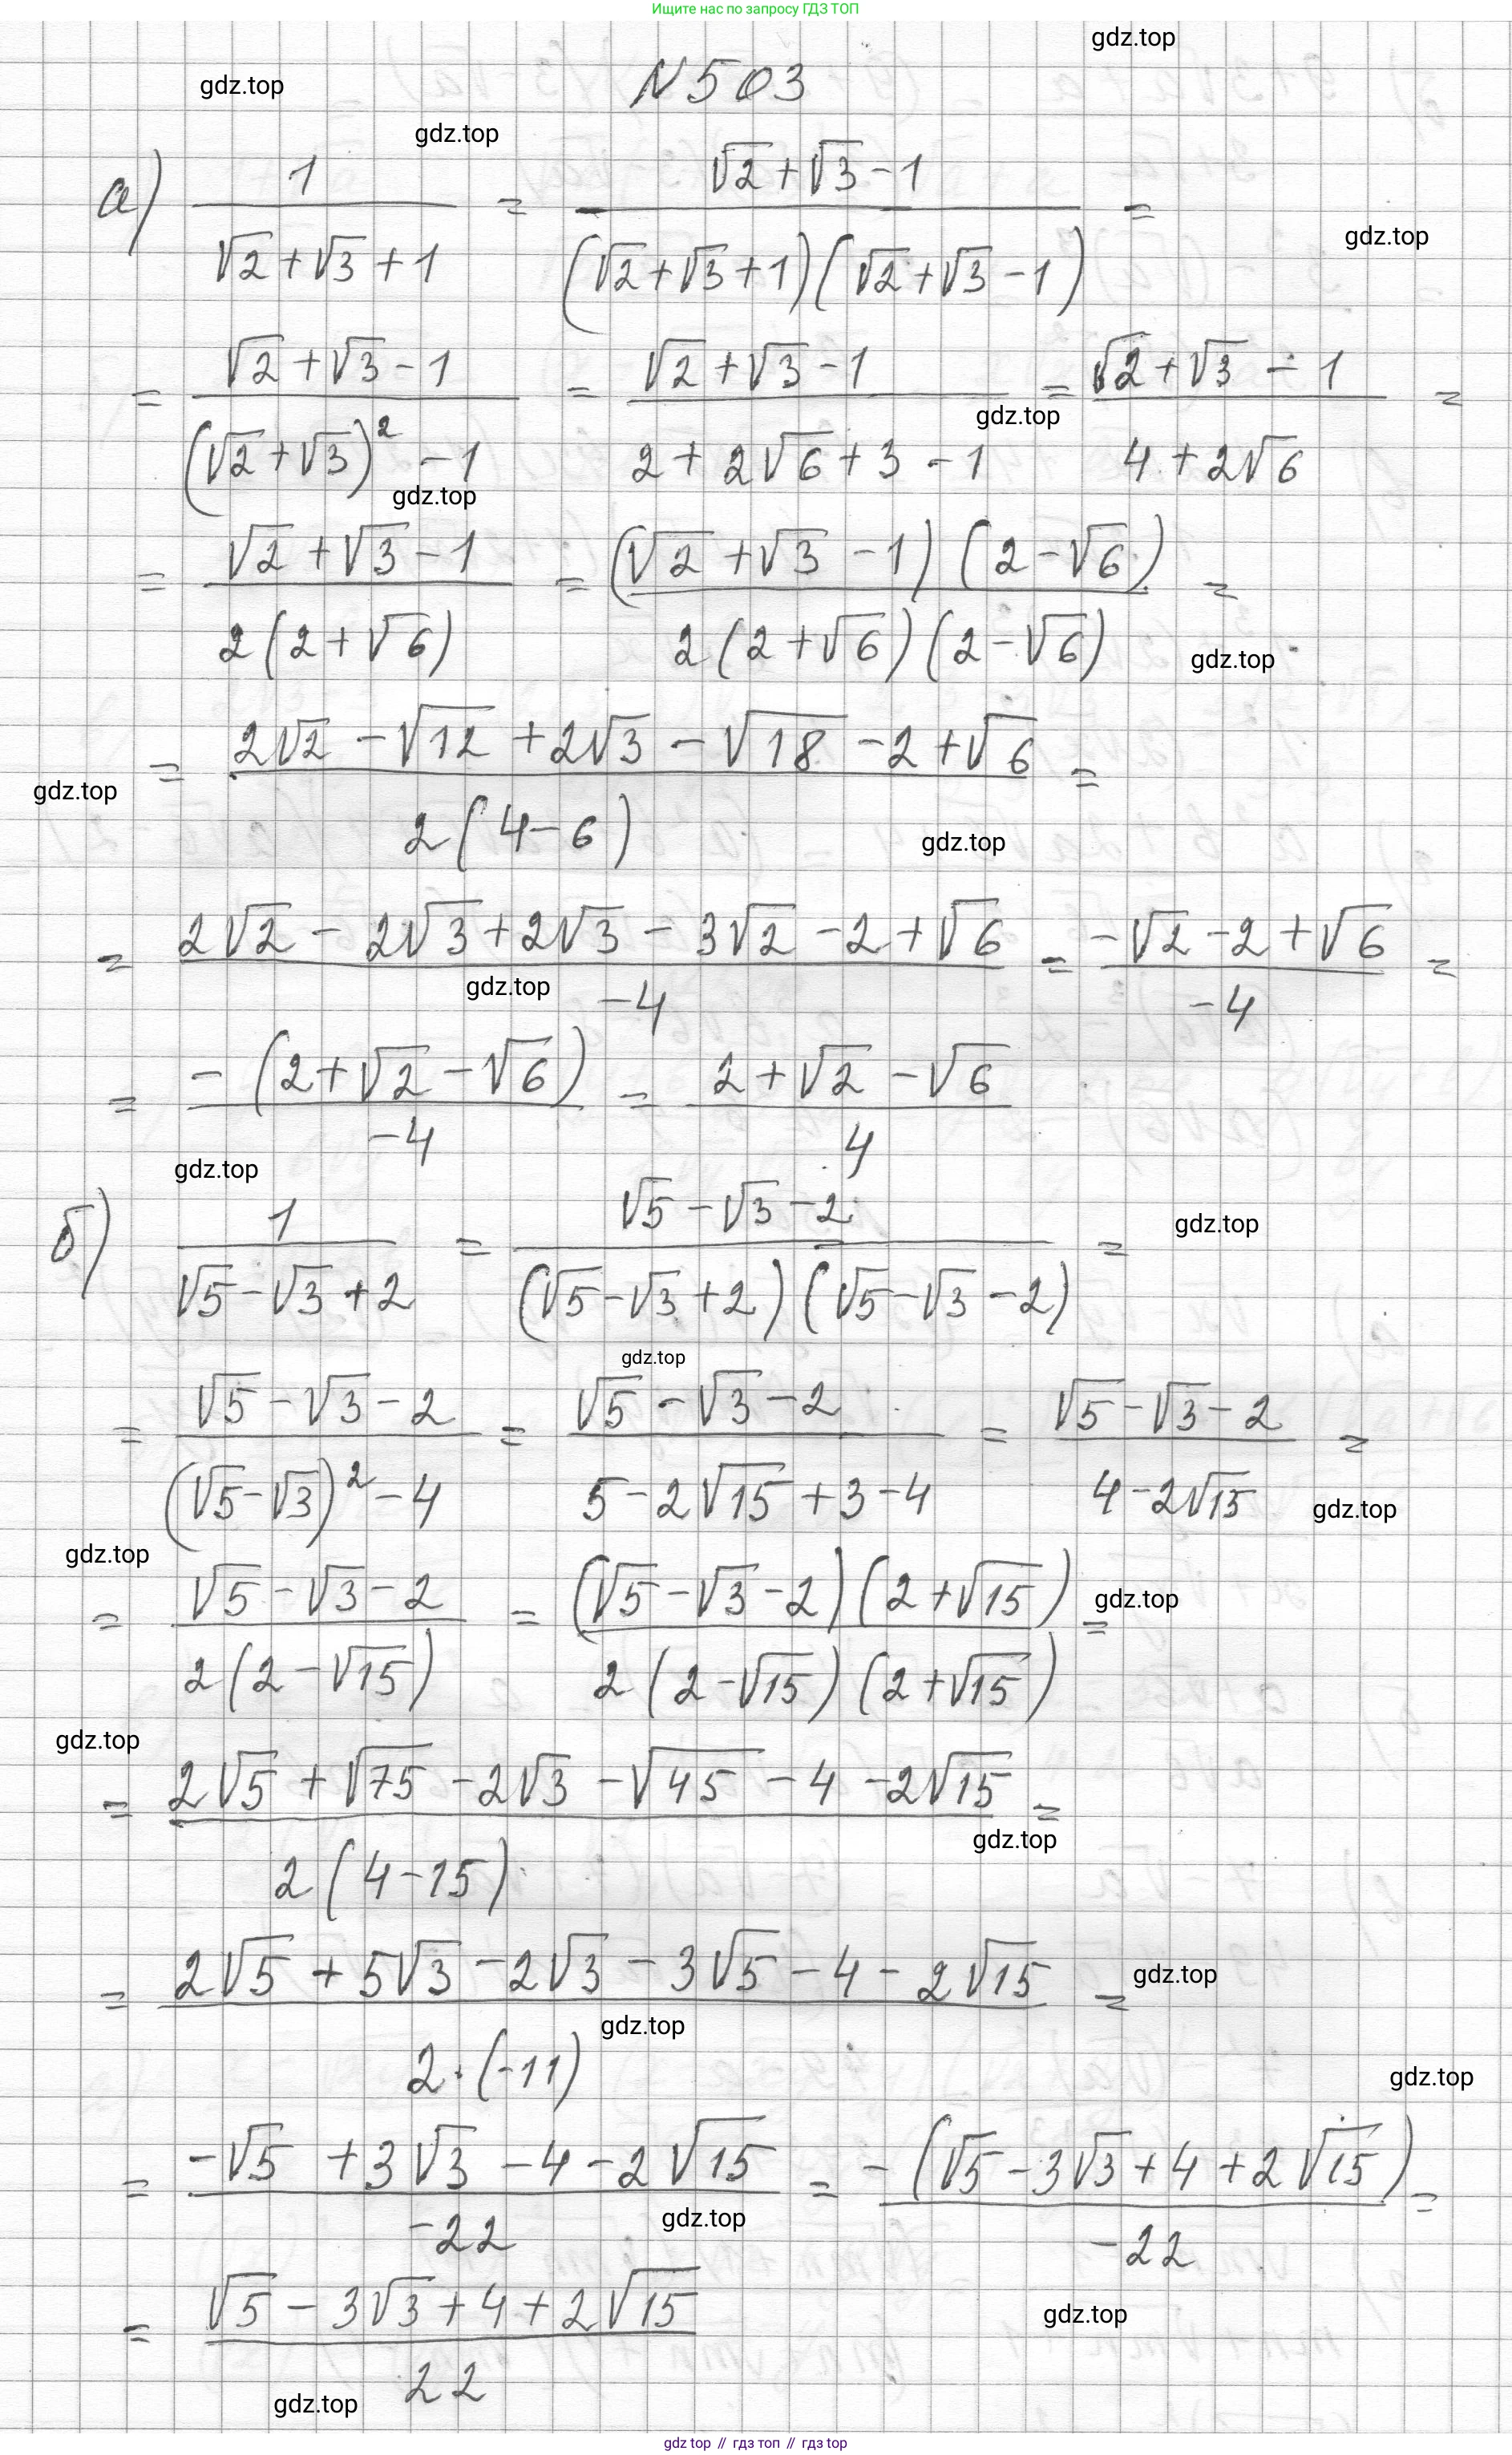 Ищите нас по запросу ГДЗ ТОП
gdz.top
N503
gdz.top
gdz.top
а) 1/(√2+√3+1) = (√2+√3-1)/((√2+√3+1)(√2+√3-1)) =
gdz.top
= (√2+√3-1)/((√2+√3)²-1) = (√2+√3-1)/(2+2√6+3-1) = (√2+√3-1)/(4+2√6) =
gdz.top
gdz.top
= (√2+√3-1)/(2(2+√6)) = ((√2+√3-1)(2-√6))/(2(2+√6)(2-√6)) =
gdz.top
= (2√2-√12+2√3-√18-2+√6)/(2(4-6)) =
gdz.top
gdz.top
= (2√2-2√3+2√3-3√2-2+√6)/(-4) = (-√2-2+√6)/(-4) =
gdz.top
= (-(2+√2-√6))/(-4) = (2+√2-√6)/4
gdz.top
б) 1/(√5-√3+2) = (√5-√3-2)/((√5-√3+2)(√5-√3-2)) =
gdz.top
gdz.top
= (√5-√3-2)/((√5-√3)²-4) = (√5-√3-2)/(5-2√15+3-4) = (√5-√3-2)/(4-2√15) =
gdz.top
gdz.top
= (√5-√3-2)/(2(2-√15)) = ((√5-√3-2)(2+√15))/(2(2-√15)(2+√15)) =
gdz.top
gdz.top
= (2√5+√75-2√3-√45-4-2√15)/(2(4-15)) =
gdz.top
= (2√5+5√3-2√3-3√5-4-2√15)/(2·(-11)) =
gdz.top
gdz.top
gdz.top
= (-√5+3√3-4-2√15)/(-22) = (-(√5-3√3+4+2√15))/(-22) =
gdz.top
= (√5-3√3+4+2√15)/22
gdz.top
gdz.top
gdz top // гдз топ // гдз top